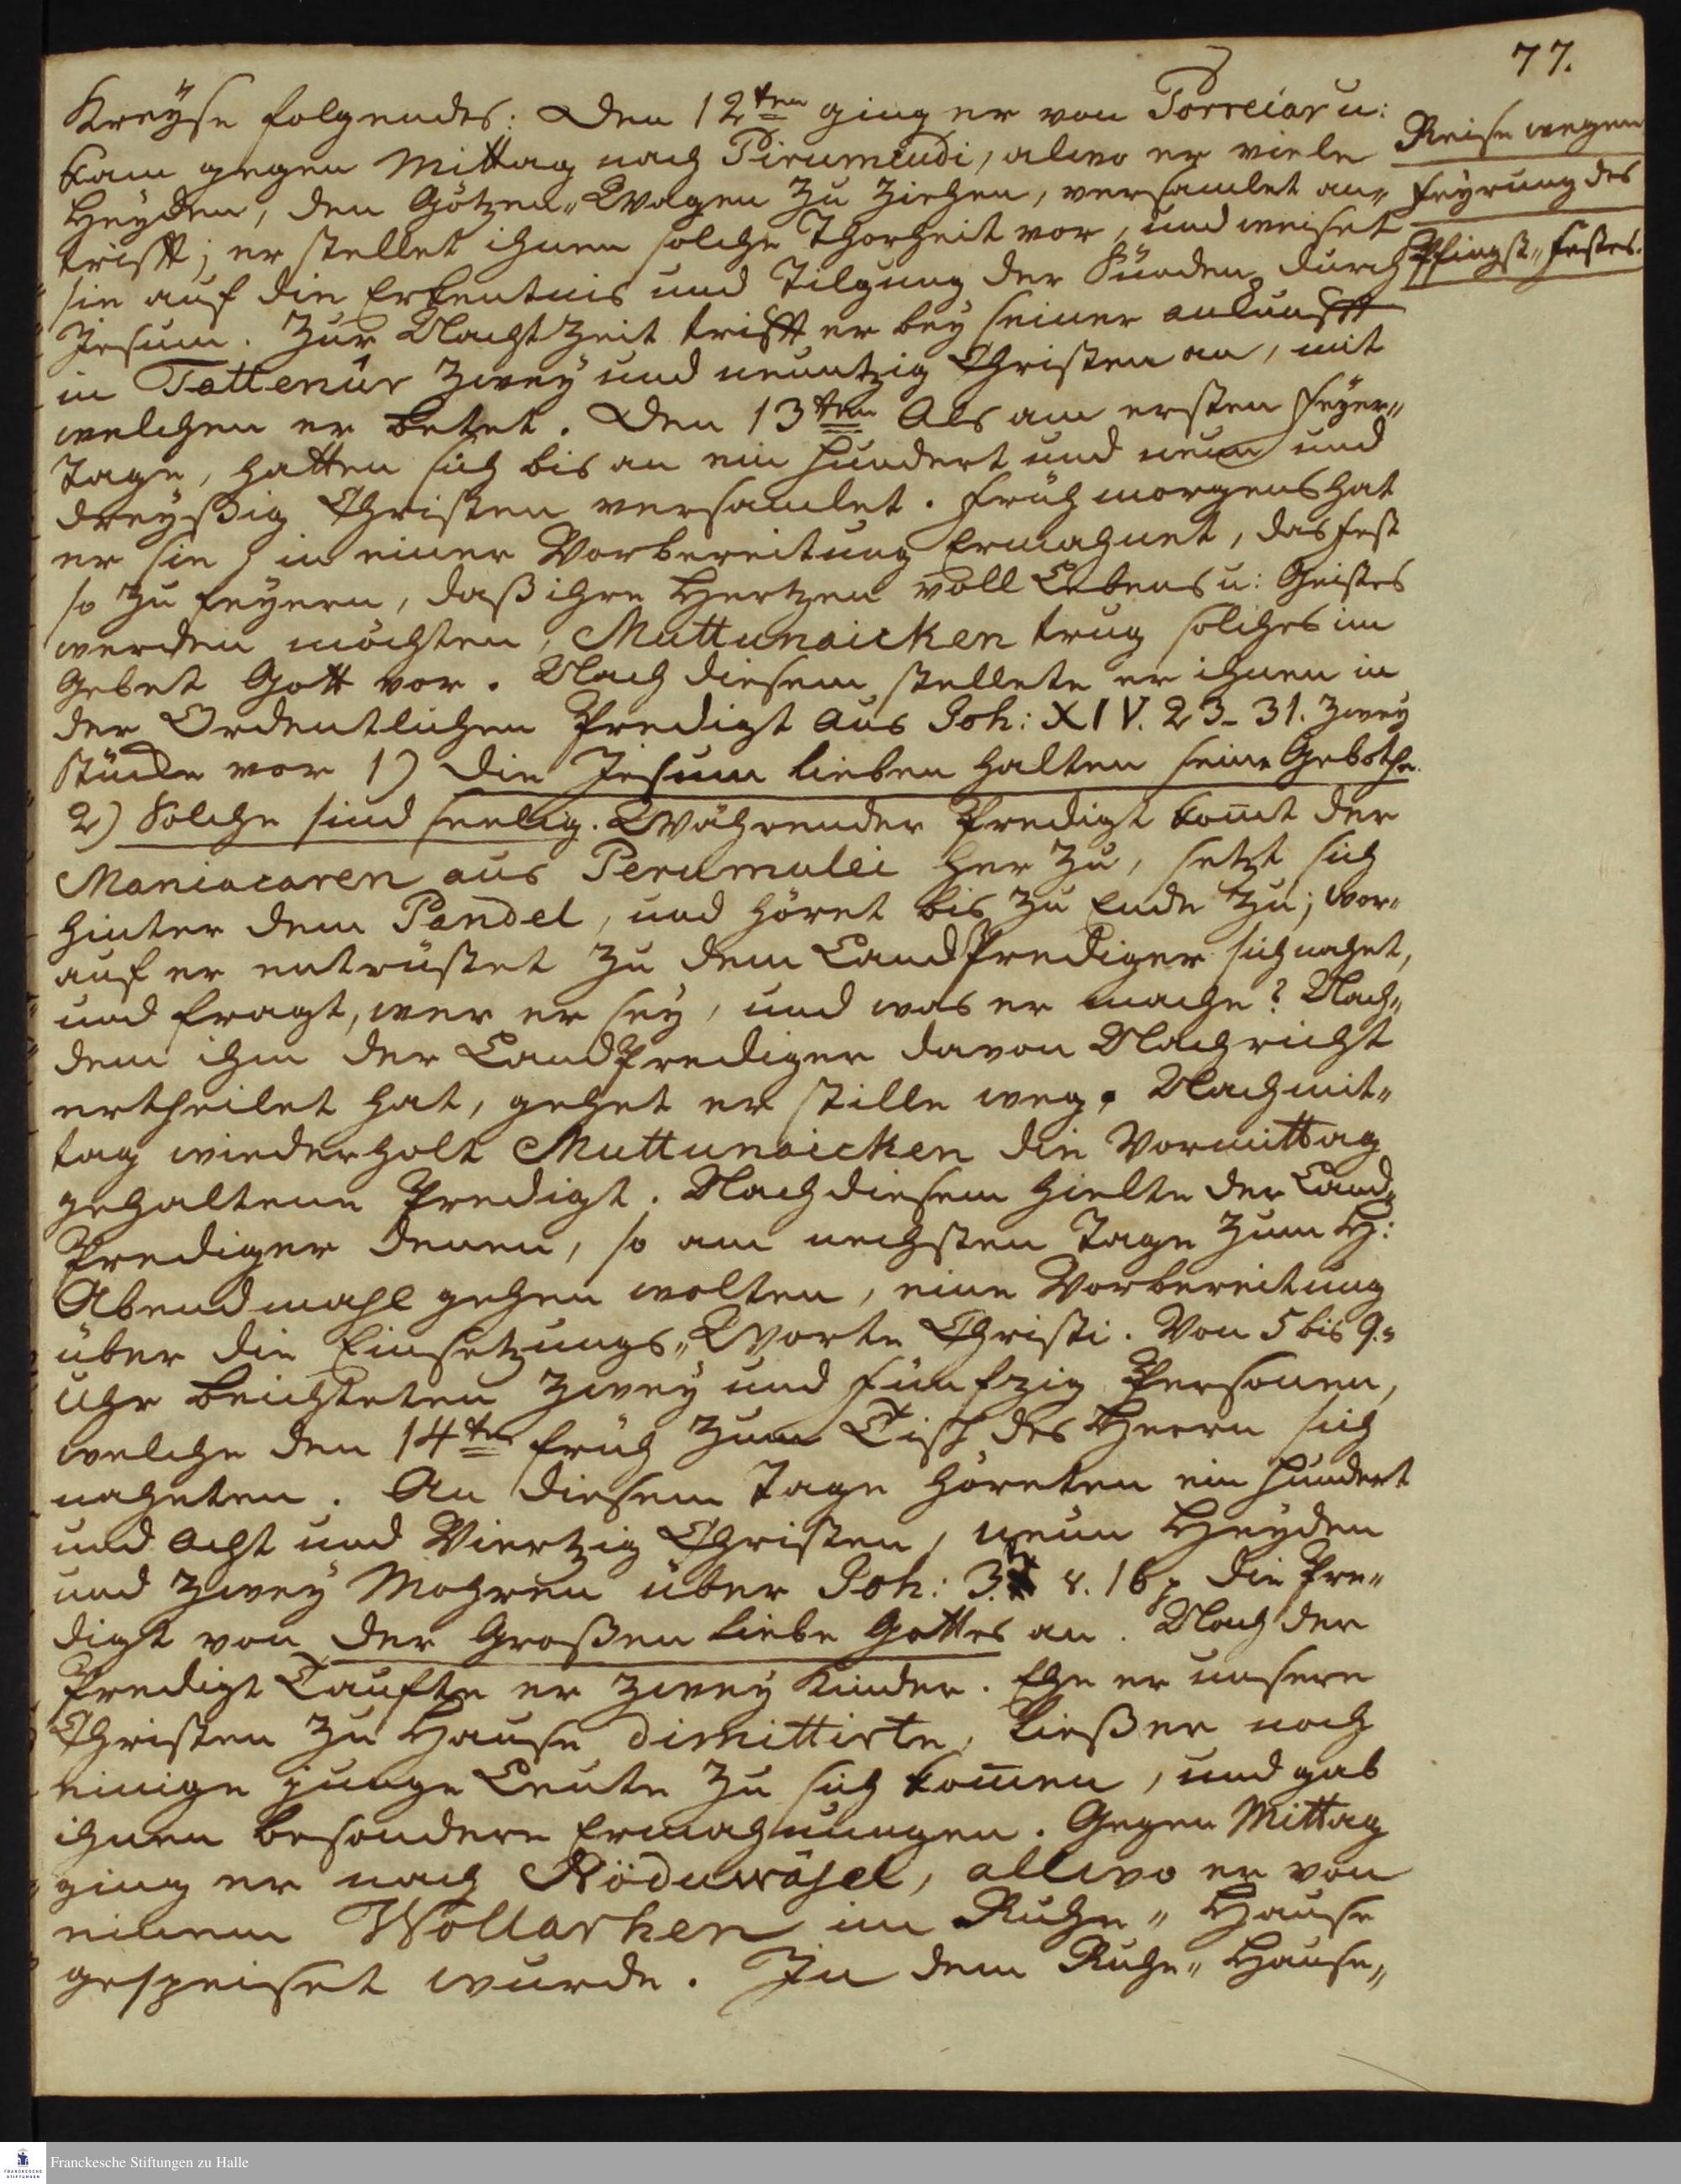 77.
Kreyse folgendes: Den 12ten ging er von Porreiar u:
kam gegen Mittag nach Pirumeudi, alwo er viele
Heyden, den Götzen-Wagen zu ziehen, versamlet an-
trifft; er stellet ihnen solche Thorheit vor, und weiset
sie auf die Erkentnis und Tilgung der Sünden durch
Jesum. Zur Nacht Zeit trifft er bey seiner ankunfft
in Tattenúr zwey und neuntzig Christen an, mit
welchen er betet. Den 13ten Als am ersten Feyer-
Tage, hatten sich bis an ein hundert und neun und
dreyßig Christen versamlet. Früh morgens hat
er sie in einer Vorbereitung Ermahnet, das Fest
so zu feyern, daß ihre Hertzen voll Lebens u: Geistes
werden möchten, Muttunaicken trug solches im
Gebet Gott vor. Nach diesem stellete er ihnen in
der Ordentlichen Predigt aus Joh: XIV. 23-31. zwey
Stücke vor 1) Die Jesum lieben halten seine Gebothe.
2) Solche sind seelig. Währender Predigt kom̄t der
Maniacaren aus Perumulei her zu, setzt sich
hinter dem Pandel, und höret bis zu Ende zu; wor-
auf er entrüstet zu dem LandPrediger sich nahet,
und fragt, wer er sey, und was er mache? Nach-
dem ihm der LandPrediger davon Nachricht
ertheilet hat, gehet er stille weg. Nachmit-
tag wiederholt Muttunaicken die Vormittag
gehaltene Predigt. Nach diesem hielte der Land-
Prediger denen, so am nechsten Tage zum H:
Abendmahl gehen wolten, eine Vorbereitung
über die Einsetzungs-Worte Christi. Von 5 bis 9.
Uhr beichteten zwey und fünfzig Personen,
welche den 14ten früh zum Tisch des Herrn sich
naheten. An diesem Tage höreten ein hundert
und Acht und Viertzig Christen, neun Heyden
und zwey Mohren über Joh: 3. v. 16 die Pre-
digt von der Großen Liebe Gottes an. Nach der
Predigt Tauffte er zwey Kinder. Ehe er unsere
Christen zu Hause dimittirte, ließ er noch
einige junge Leute zu sich kom̄en, und gab
ihnen besondere Ermahnungen. Gegen Mittag
ging er nach Nöduwásel, allwo er von
einem Wöllarhen im Ruhe-Hause
gespeiset wurde. In dem Ruhe-Hause-
Reise wegen
Feyrung des
Pfingst-Festes.
Franckesche Stiftungen zu Halle
FRANCKESCHE
STIFTUNGEN